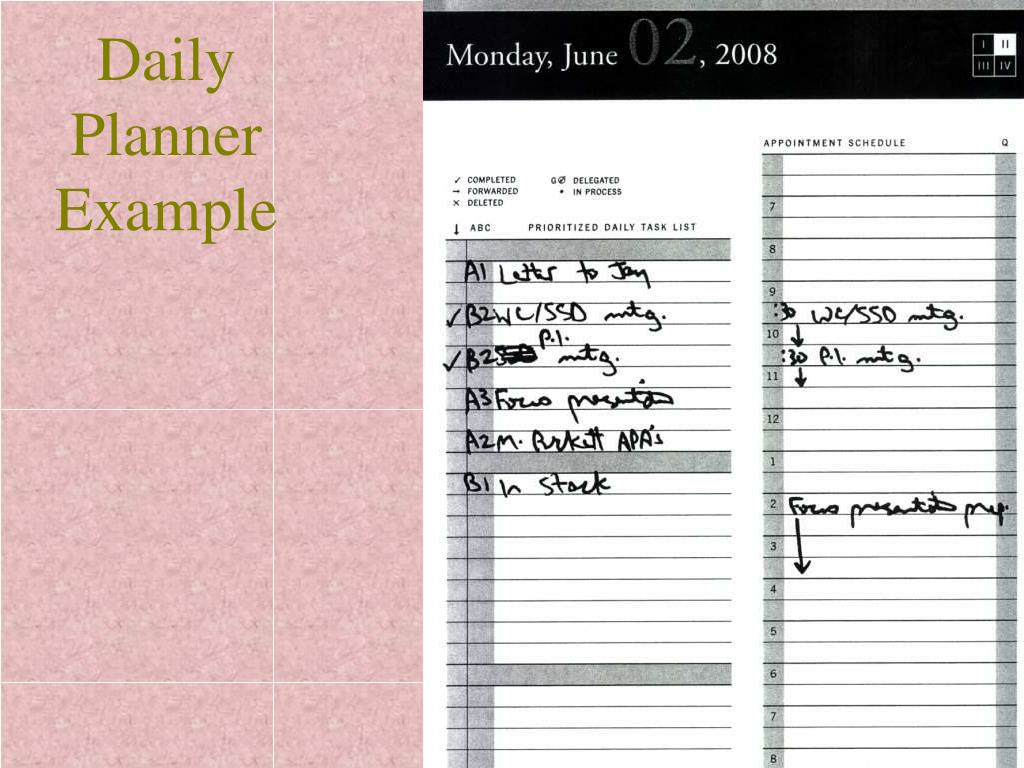 Daily
Planner
Example
Monday, June 02, 2008
I II
III IV
✓ COMPLETED GØ DELEGATED
→ FORWARDED • IN PROCESS
✕ DELETED
↓ ABC PRIORITIZED DAILY TASK LIST
A1 Letter to Jay
✓ B2 WC/SSD mtg.
✓ B2 P.I. mtg.
A3 Focus presentation
A2 M. APA's
B1 In Stock
APPOINTMENT SCHEDULE Q
7
8
9
:30 WC/SSD mtg.
10
:30 P.I. mtg.
11
12
1
2 Focus presentation prep.
3
4
5
6
7
8